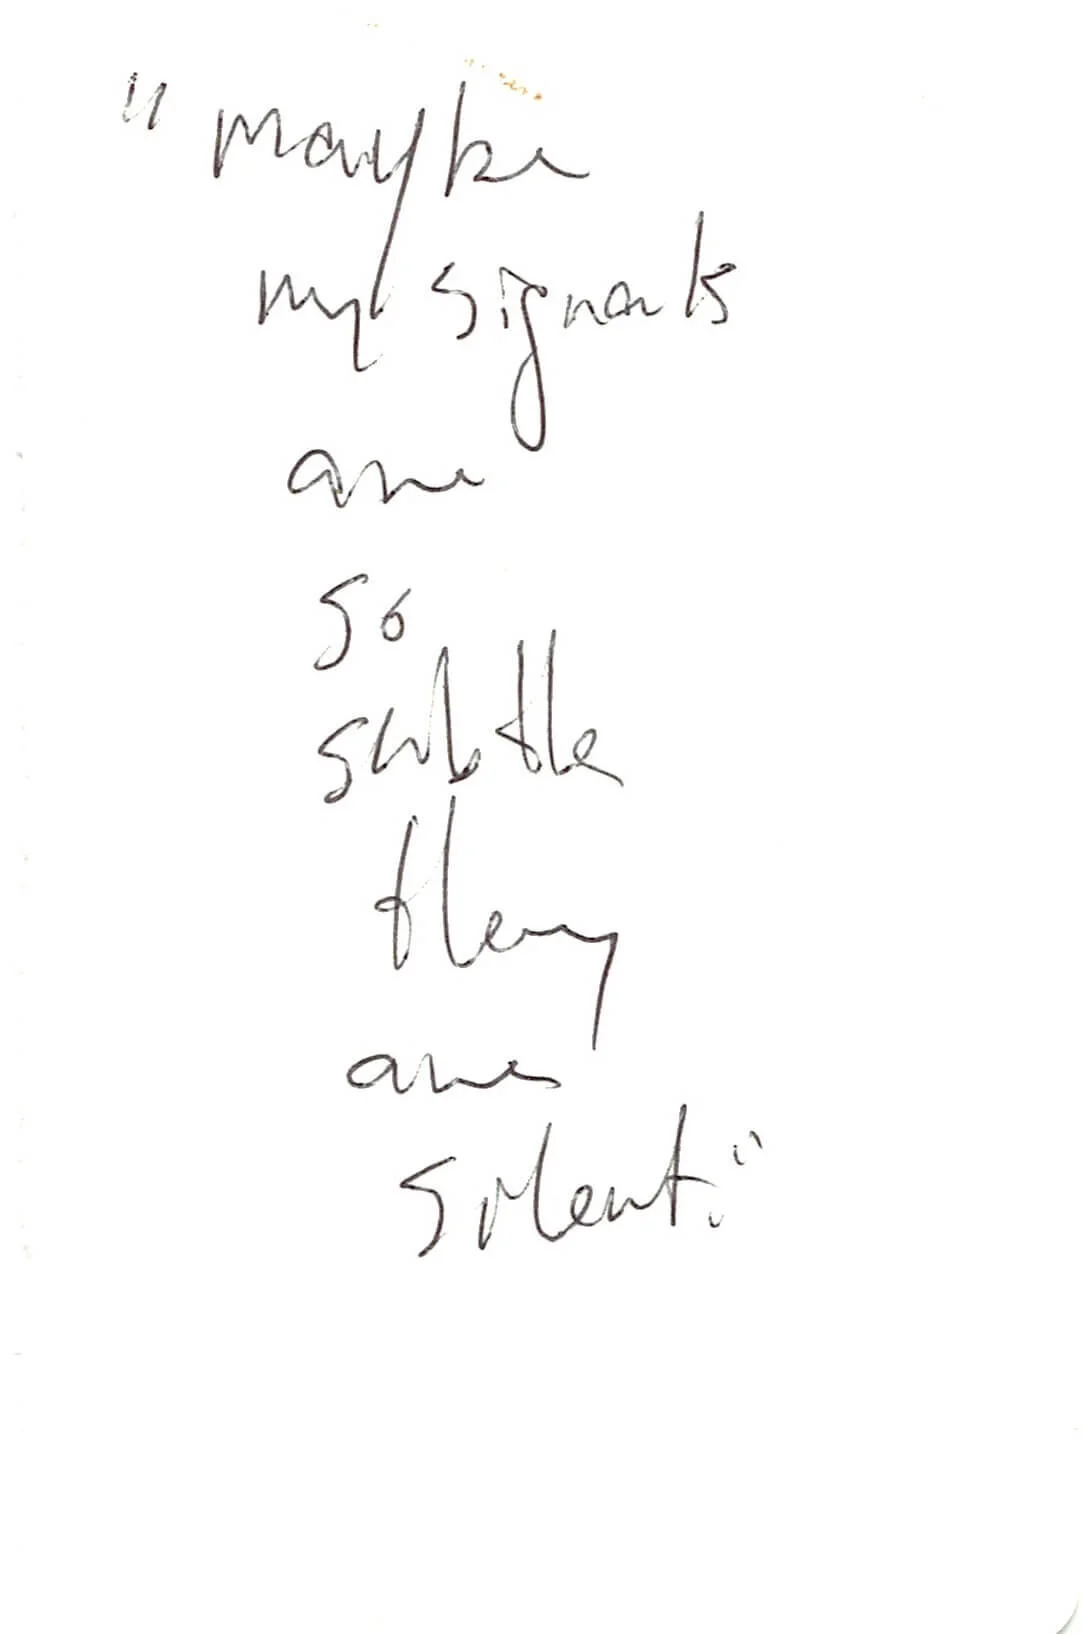 "Maybe
my signals
are
so
subtle
they
are
silent."